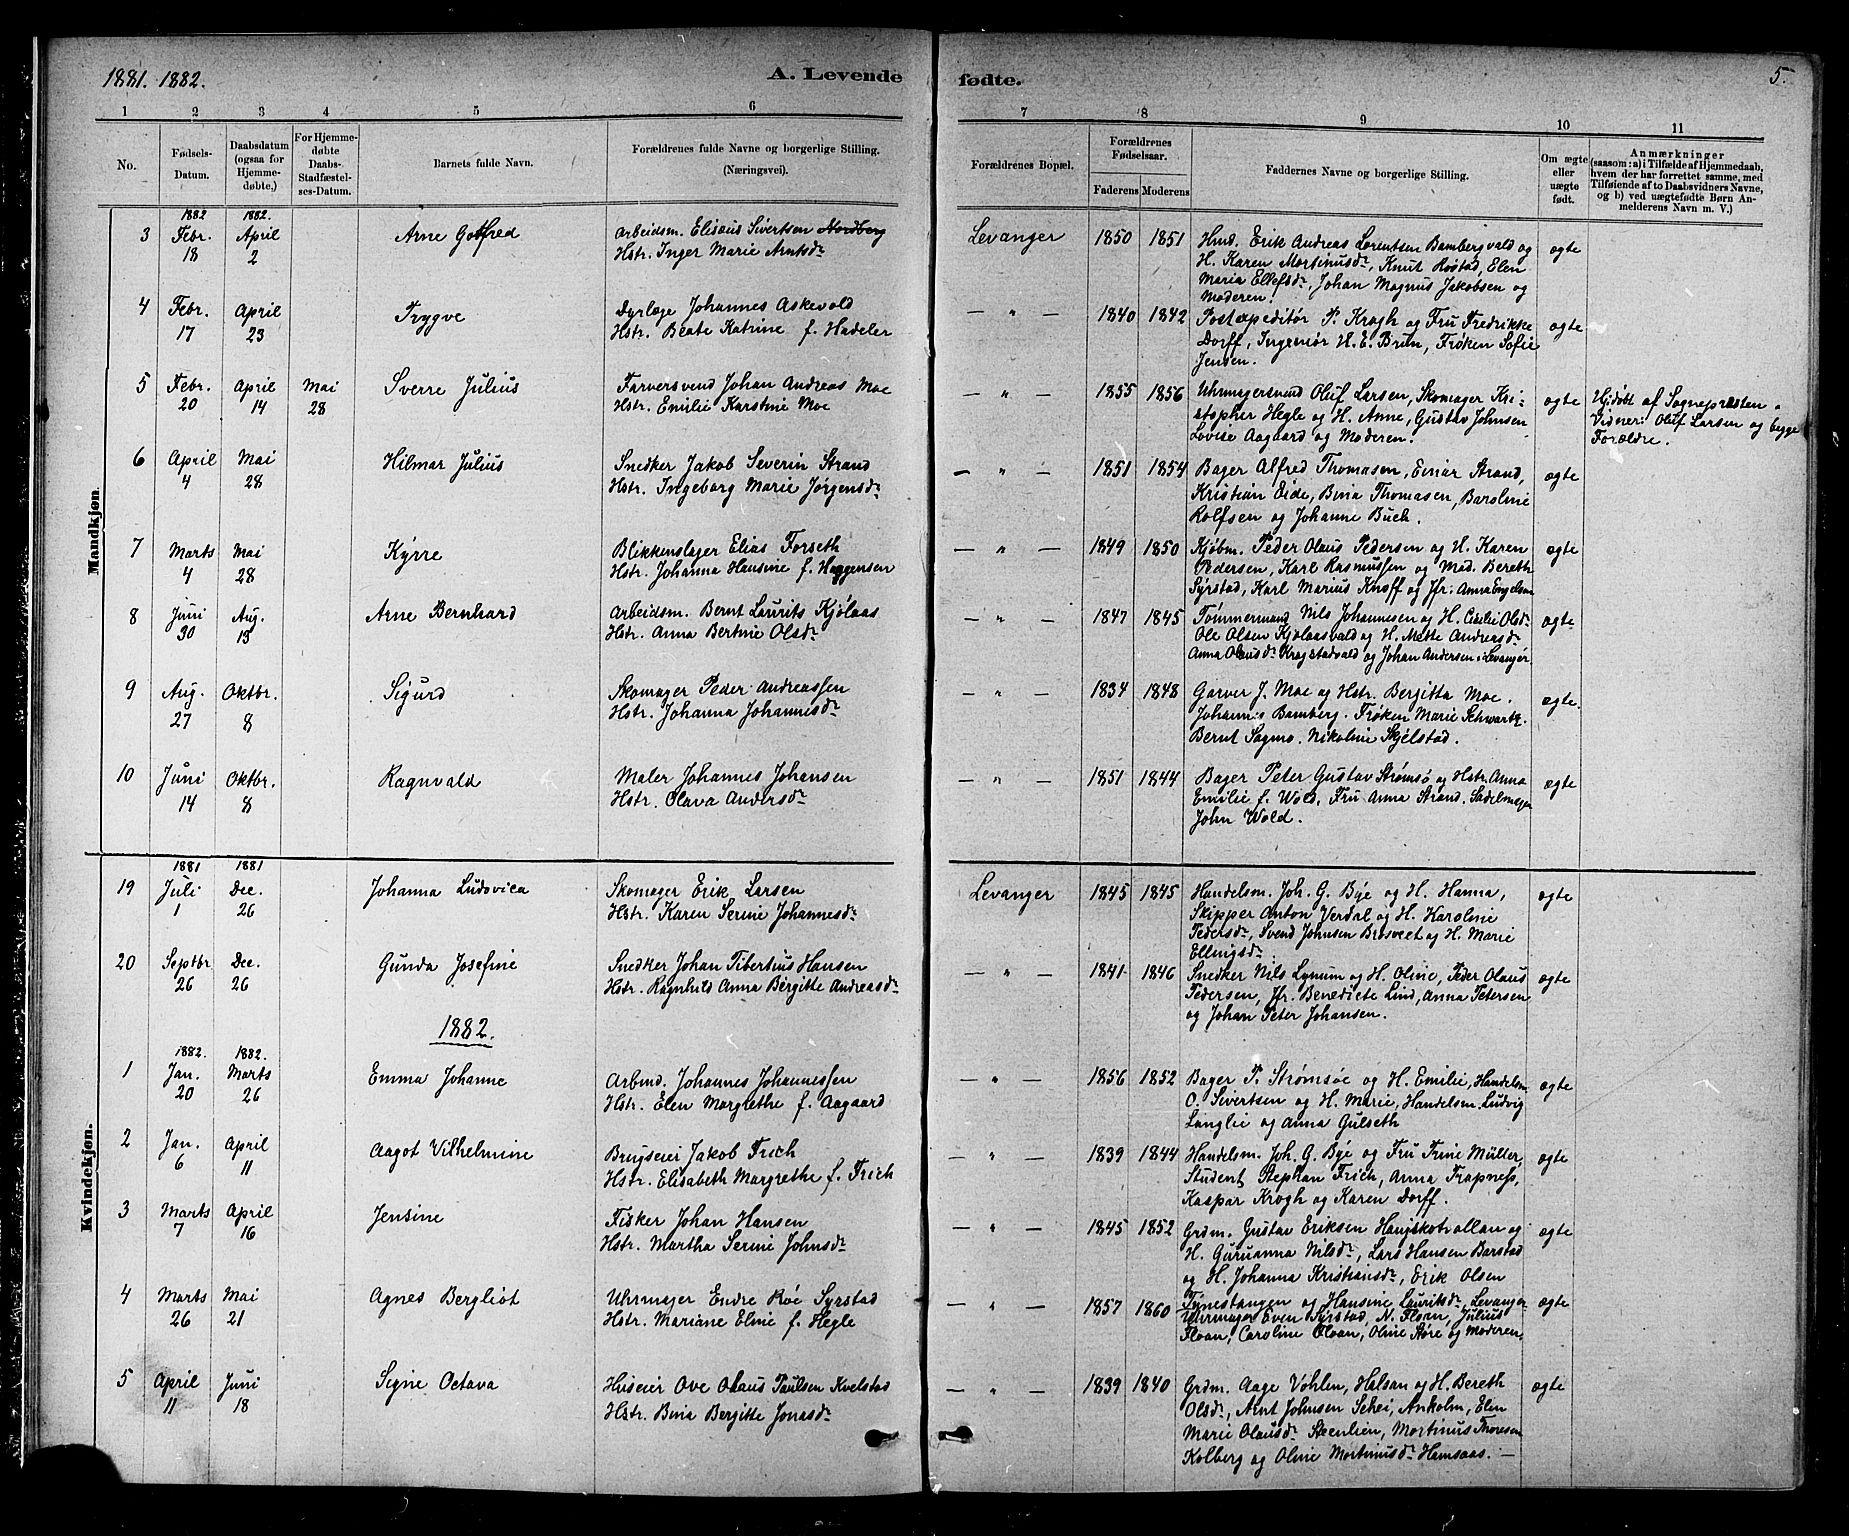 1881. 1882.
A. Levende
fødte.
5.
1 2 3 4 5 6 7 8 9 10 11
No.
Fødsels-Datum.
Daabsdatum (ogsaa for Hjemmedøbte,)
For Hjemmedøbte Daabs-Stadfæstelses-Datum.
Barnets fulde Navn.
Forældrenes fulde Navne og borgerlige Stilling. (Næringsvei).
Forældrenes Bopæl.
Forældrenes Fødselsaar.
Faderens Moderens
Faddernes Navne og borgerlige Stilling.
Om ægte eller uægte født.
Anmærkninger
(saasom: a) i Tilfælde af Hjemmedaab, hvem der har forrettet samme, med Tilføiende af to Daabsvidners Navne, og b) ved uægtefødte Børn Anmelderens Navn m. V.)
Mandkjøn.
1882 1882.
3 Febr. 18 April 2 Arne Gotfred
Arbeidsm. Elisæus Sivertsen Nordberg
Hstr. Inger Marie Arntsdr
Levanger 1850 1851
Hmd. Erik Andreas Lorentsen Bambergvald og
H. Karen Mortinusdr, Knut Røstad, Elen
Maria Ellefsdr, Johan Magnus Jakobsen og
Moderen.
ægte
4 Febr. 17 April 23 Trygve
Dyrlæge Johannes Askevold
Hstr. Beate Katrine f. Hadeler
— " — 1840 1842
Postexpeditør P. Krogh og Fru Fredrikke
Dorff, Ingeniør H. E. Brun, Frøken Sofie
Jensen.
ægte
5 Febr. 20 April 14 Mai 28 Sverre Julius
Farversvend Johan Andreas Moe
Hstr. Emilie Karstine Moe
— " — 1855 1856
Uhrmagersvend Oluf Larsen, Skomager Kri-
stopher Hegle og H. Anne, Gustav Johnsen
Lovise Aagaard og Moderen.
ægte
Hjdøbt af Sognepresten.
Vidner: Oluf Larsen og begge
Forældre.
6 April 4 Mai 28 Hilmar Julius
Snedker Jakob Severin Strand
Hstr. Ingeborg Marie Jørgensdr
— " — 1851 1854
Bager Alfred Thomasen, Einar Strand,
Kristian Eide, Bina Thomasen, Baroline
Rolfsen og Johanne Buch.
ægte
7 Marts 4 Mai 28 Kyrre
Blikkenslager Elias Forseth
Hstr. Johanna Hansine f. Haggensen
— " — 1849 1850
Kjøbm. Peder Olaus Pedersen og H. Karen
Pedersen, Karl Rasmussen og Mad. Bereth
Syrstad, Karl Marius Knoff og Jfr: Anna Engelsen
ægte
8 Juni 30 Aug. 13 Arne Bernhard
Arbeidsm. Bernt Laurits Kjølaas
Hstr. Anna Bertine Olsdr
— " — 1847 1845
Tømmermand Nils Johannesen og H. Cecilie Olsdr
Ole Olsen Kjølaasvald og H. Mette Andreasdr
Anna Olausdr Kragstadvald og Johan Andersen i Levanger
ægte
9 Aug. 27 Oktbr. 8 Sigurd
Skomager Peder Andreassen
Hstr. Johanna Johannesdr
— " — 1834 1848
Garver J. Moe og Hstr. Bergitta Moe.
Johannes Bamberg. Frøken Marie Schwartz.
Bernt Sagmo. Nikoline Skjelstad.
ægte.
10 Juni 14 Oktbr. 8 Ragnvald
Maler Johannes Johansen
Hstr. Olava Andersdr
— " — 1851 1844
Bager Peter Gustav Strømsø og Hstr. Anna
Emilie f. Wold. Fru Anna Strand. Sadelmager
John Wold.
ægte
Kvindekjøn.
1881 1881
19 Juli 1 Dec. 26 Johanna Ludovica
Skomager Erik Larsen
Hstr. Karen Serine Johannesdr
Levanger 1845 1845
Handelsm. Joh. G. Bye og H. Hanna,
Skipper Anton Verdal og H. Karoline
Pedersdr, Svend Johnsen Brosveet og H. Marie
Ellingsdr.
ægte
20 Septbr 26 Dec. 26 Gunda Josefine
Snedker Johan Tibertius Hansen
Hstr. Ragnhild Anna Bergitte Andreasdr
— " — 1841 1846
Snedker Nils Lynum og H. Oline, Peder Olaus
Pedersen, Jfr. Benedicte Lind, Anna Petersen
og Johan Peter Johansen.
ægte
1882.
1882. 1882.
1 Jan. 20 Marts 26 Emma Johanne
Arbmd. Johannes Johannessen
Hstr. Elen Margrethe f. Aagaard
— " — 1856 1852
Bager P. Strømsøe og H. Emilie, Handelsm.
C. Sivertsen og H. Marie, Handelsm. Ludvig
Langlie og Anna Gulseth
ægte
2 Jan. 6 April 11 Aagot Vilhelmine
Brugseier Jakob Frich
Hstr. Elisabeth Margrethe f. Frich
— " — 1839 1844
Handelsm. Joh. G. Bye og Fru Trine Müller,
Student Stephan Frich, Anna Trapness,
Kaspar Krogh og Karen Dorff.
ægte
3 Marts 7 April 16 Jensine
Fisker Johan Hansen
Hstr. Martha Serine Johnsdr
— " — 1845 1852
Grdm. Gustav Eriksen Haugskotvallan og
H. Guruanna Nilsdr, Lars Hansen Barstad
og H. Johanna Kristiansdr, Erik Olsen
Tynestangen og Hansine Lauritsdr, Levanger
ægte
4 Marts 26 Mai 21 Agnes Bergliot
Uhrmager Endre Roe Syrstad
Hstr. Mariane Eline f. Hegle
— " — 1857 1860
Uhrmager Even Syrstad, N. Floan, Julius
Floan, Caroline Floan, Oline Støre og Moderen.
ægte
5 April 11 Juni 18 Signe Octava
Huseier Ove Olaus Paulsen Kvelstad
Hstr. Bina Bergitte Jonasdr
— " — 1839 1840
Grdm. Aage Vohlen, Halsan og H. Bereth
Olsdr, Arnt Johnsen Schei, Ankolm, Elen
Marie Olausdr Steenlien, Mortinus Thoresen
Kolberg og Oline Mortinusdr Hamsaas. —
ægte